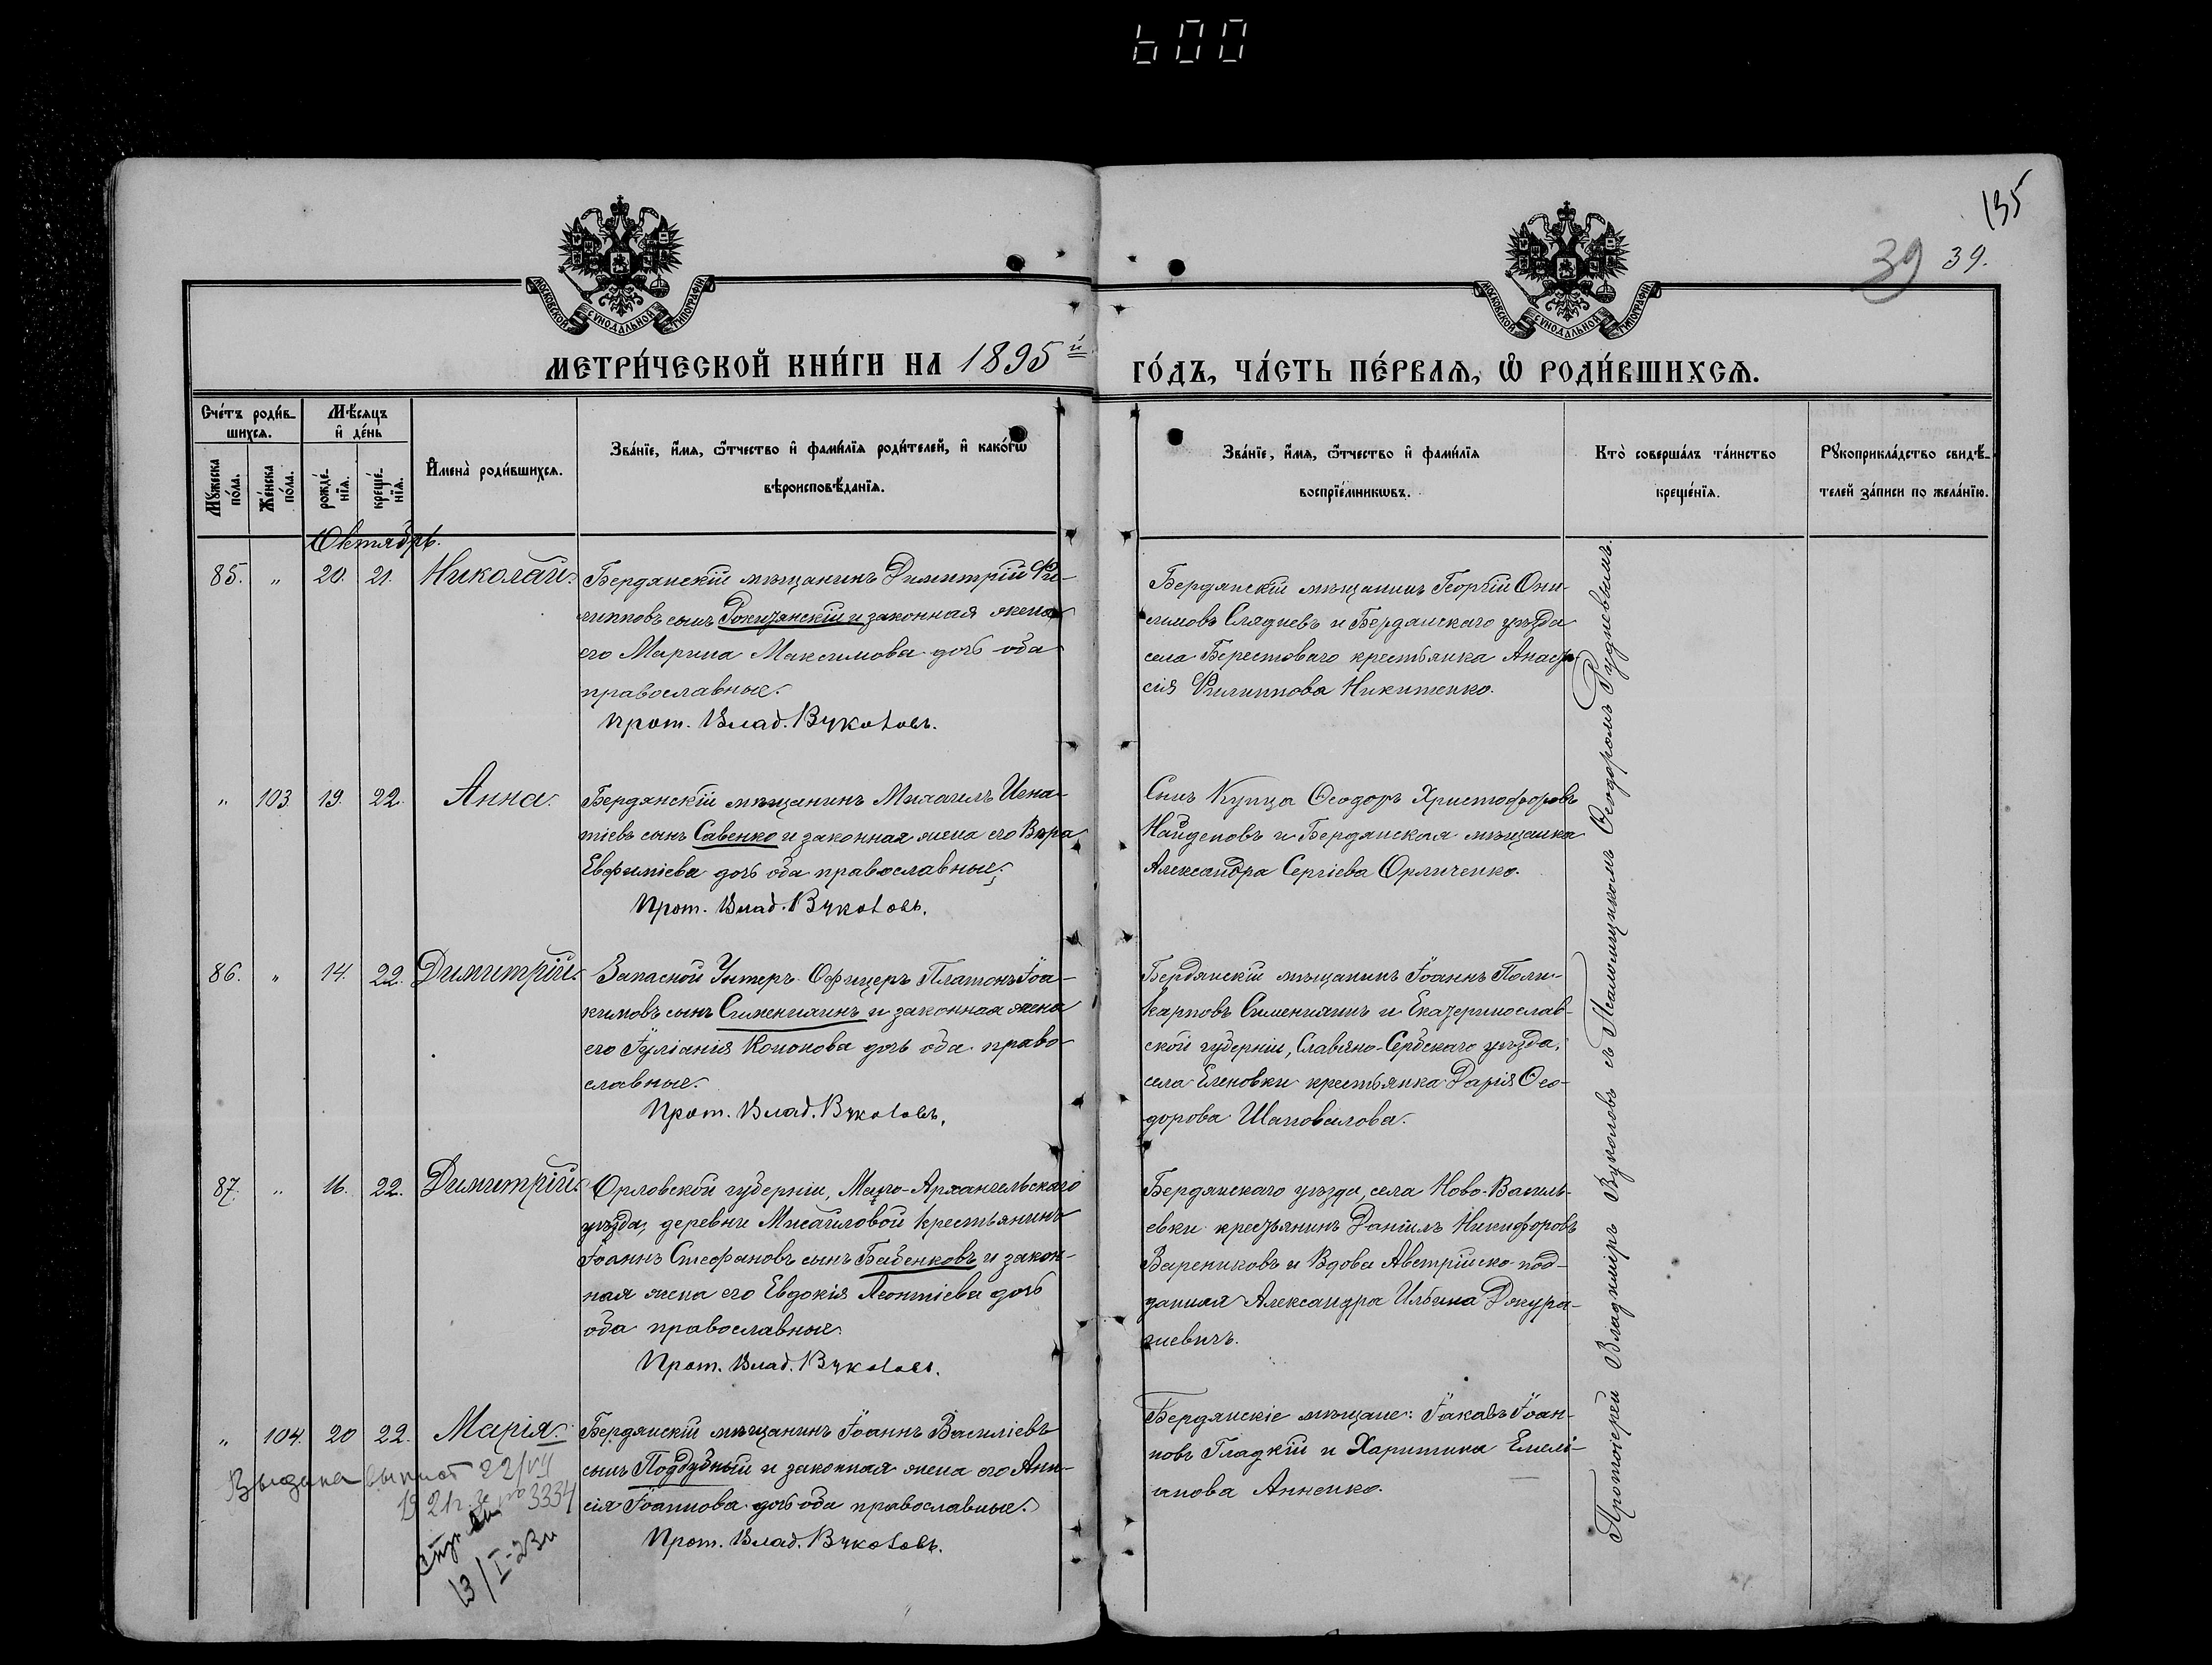 600
135
39 39.
МОСКОВСКОЙ СѴНОДАЛЬНОЙ ТИПОГРАФІИ
МОСКОВСКОЙ СѴНОДАЛЬНОЙ ТИПОГРАФІИ
МЕТРИ́ЧЕСКОЙ КНИ́ГИ НА 1895й
ГО́ДЪ, ЧА́СТЬ ПЕ́РВАѦ, Ѡ҆ РОДИ́ВШИХСѦ.
Сче́тъ роди́в-
шихсѧ.
Мꙋжеска по́ла.
Же́нска по́ла.
Мѣ́сѧцъ
и҆ де́нь
рожде́-
нїѧ.
креще́-
нїѧ.
И҆мена̀ роди́вшихсѧ.
Зва́нїе, и҆́мѧ, ѻ҆́тчество и҆ фами́лїѧ роди́телей, и҆ како́гѡ
вѣроисповѣ́данїѧ.
Зва́нїе, и҆́мѧ, ѻ҆́тчество и҆ фами́лїѧ
воспрїе́мникѡвъ.
Кто̀ соверша́лъ та́инство
креще́нїѧ.
Рꙋкоприкла́дство свидѣ́-
телей за́писи по жела́нїю.
Октябрь.
85. „ 20. 21. Николай.
Бердянскій мѣщанинъ Димитрій Фи-
липповъ сынъ Рокизянскій и законная жена
его Марина Максимова дочь оба
православные.
Прот. Влад. Вуколовъ.
Бердянскій мѣщанинъ Георгій Они-
симовъ Слядневъ и Бердянскаго уѣзда
села Берестоваго крестьянка Анаста-
сія Филиппова Никитенко.
„ 103. 19. 22. Анна.
Бердянскій мѣщанинъ Михаилъ Игна-
тіевъ сынъ Савенко и законная жена его Вѣра
Евфиміева дочь оба православные.
Прот. Влад. Вуколовъ.
Сынъ Купца Ѳеодоръ Христофоровъ
Найденовъ и Бердянская мѣщанка
Александра Сергіева Орличенко.
86. „ 14. 22. Димитрій.
Запасной Унтеръ-Офицеръ Платонъ Іоа-
кимовъ сынъ Сименихинъ и законная жена
его Іуліанія Кононова дочь оба право-
славные.
Прот. Влад. Вуколовъ.
Бердянскій мѣщанинъ Іоаннъ Поли-
карповъ Сименихинъ и Екатеринослав-
ской губерніи, Славяно-Сербскаго уѣзда,
села Еленовки крестьянка Дарія Ѳео-
дорова Шаповалова.
87. „ 16. 22. Димитрій.
Орловской губерніи, Мало-Архангельскаго
уѣзда, деревни Мисаиловой крестьянинъ
Іоаннъ Стефановъ сынъ Бабенковъ и закон-
ная жена его Евдокія Леонтіева дочь
оба православные.
Прот. Влад. Вуколовъ.
Бердянскаго уѣзда, села Ново-Василь-
евки крестьянинъ Даніилъ Никифоровъ
Варениковъ и Вдова Австрійско-под-
данная Александра Ильина Джура-
шевичъ.
„ 104. 20 22. Марія.
Бердянскій мѣщанинъ Іоаннъ Василіевъ
сынъ Поддубный и законная жена его Ани-
сія Іоаннова дочь оба православные.
Прот. Влад. Вуколовъ.
Бердянскіе мѣщане: Іаковъ Іоан-
новъ Гладкій и Харитина Емелі-
анова Анненко.
Выдана выпись 22/VII
1921 г. за № 3334
13/I-23 г.
Протоіерей Владиміръ Вуколовъ съ Псаломщикомъ Ѳеодоромъ Рудневымъ.